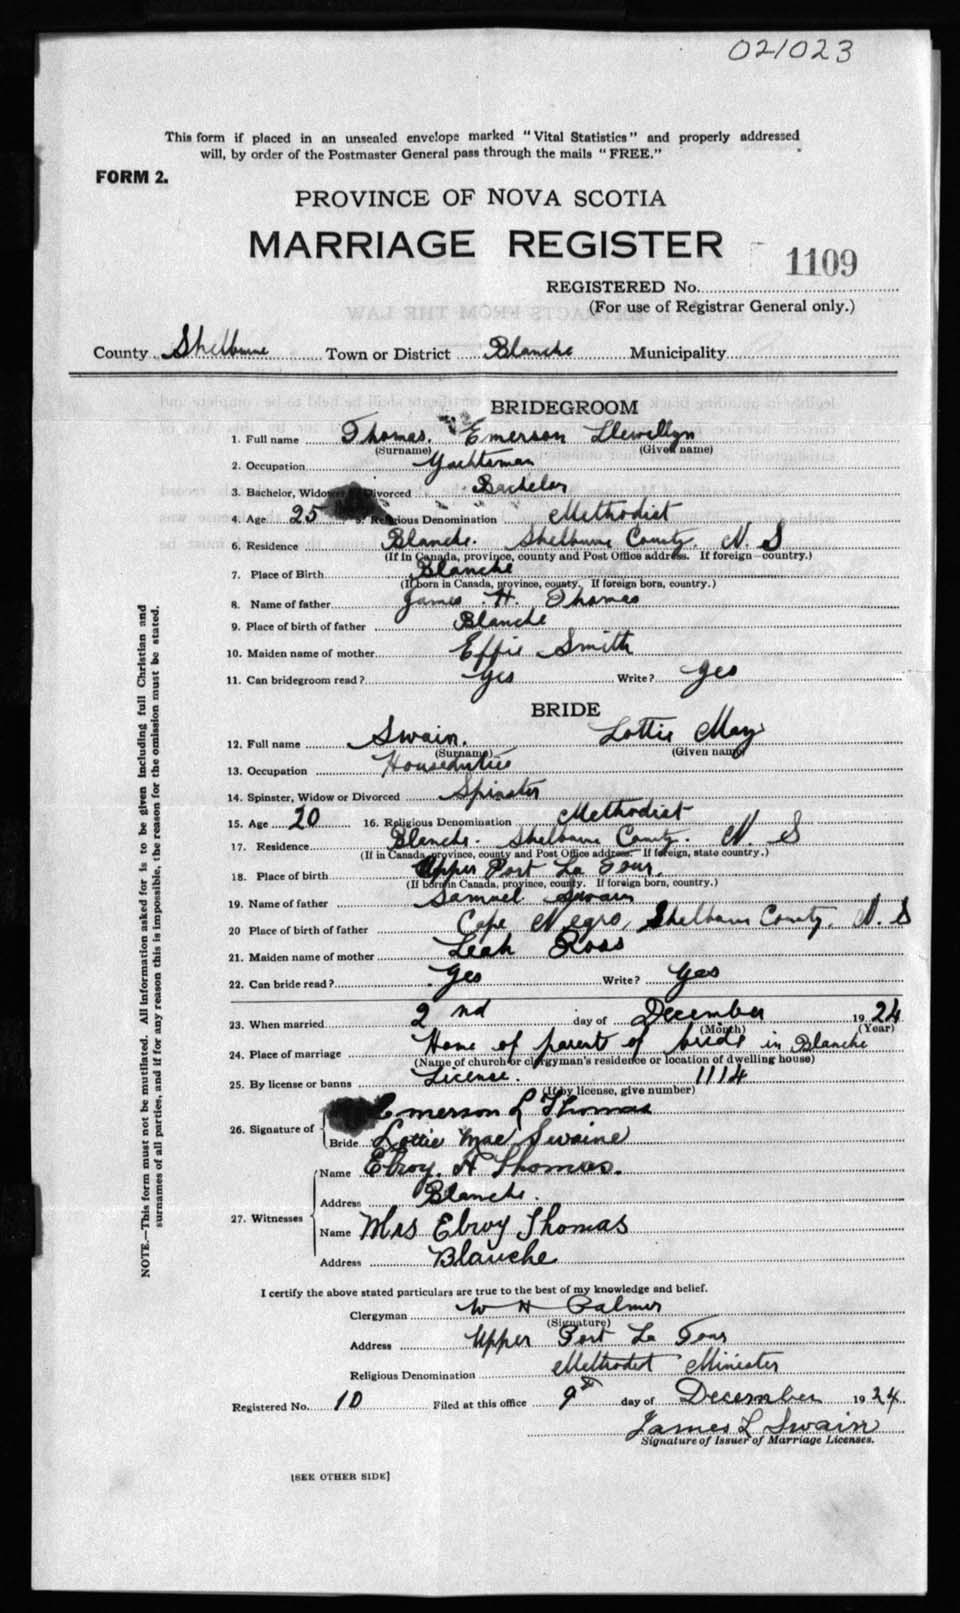 021023
This form if placed in an unsealed envelope marked "Vital Statistics" and properly addressed
will, by order of the Postmaster General pass through the mails "FREE."
FORM 2.
PROVINCE OF NOVA SCOTIA
MARRIAGE REGISTER
1109
REGISTERED No.
(For use of Registrar General only.)
County Shelburne Town or District Blanche Municipality
BRIDEGROOM
1. Full name Thomas. Emerson Llewellyn
(Surname) (Given name)
2. Occupation Yachtsman
3. Bachelor, Widower Divorced Bachelor
4. Age 25 5. Religious Denomination Methodist
6. Residence Blanche. Shelburne County. N. S
(If in Canada, province, county and Post Office address. If foreign—country.)
7. Place of Birth Blanche
(If born in Canada, province, county. If foreign born, country.)
8. Name of father James H. Thomas
9. Place of birth of father Blanche
10. Maiden name of mother Effie Smith
11. Can bridegroom read? Yes Write? Yes
BRIDE
12. Full name Swain. Lottie May
(Surname) (Given name)
13. Occupation Houseduties
14. Spinster, Widow or Divorced Spinster
15. Age 20 16. Religious Denomination Methodist
17. Residence Blanche. Shelburne County. N. S
(If in Canada, province, county and Post Office address. If foreign, state country.)
18. Place of birth Upper Port La Tour.
(If born in Canada, province, county. If foreign born, country.)
19. Name of father Samuel Swain
20 Place of birth of father Cape Negro, Shelburne County, N. S
21. Maiden name of mother Leah Ross
22. Can bride read? Yes Write? Yes
23. When married 2nd day of December 1924
(Month) (Year)
24. Place of marriage Home of parents of bride in Blanche
(Name of church or clergyman's residence or location of dwelling house)
25. By license or banns Licence. 1114
(If by license, give number)
Emerson L Thomas
26. Signature of
Bride Lottie Mae Swaine
Name Elroy. H Thomas.
Address Blanche.
27. Witnesses
Name Mrs Elroy Thomas
Address Blanche
I certify the above stated particulars are true to the best of my knowledge and belief.
Clergyman W H Palmer
(Signature)
Address Upper Port La Tour
Religious Denomination Methodist Minister
Registered No. 10 Filed at this office 9th day of December 1924.
James L Swain
Signature of Issuer of Marriage Licenses.
[SEE OTHER SIDE]
NOTE.—This form must not be mutilated. All information asked for is to be given including full Christian and
surnames of all parties, and if for any reason this is impossible, the reason for the omission must be stated.